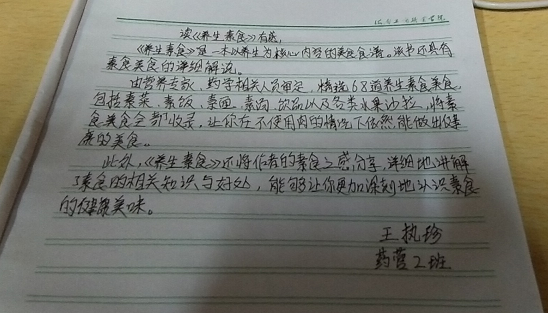 读《养生素食》有感
《养生素食》是一本以养生为核心内容的美食食谱。该书还具有
素食美食的详细解说。
由营养专家、药学相关人员审定，精选68道养生素食美食，
包括素菜、素饭、素面、素汤、饮品以及各类水果沙拉，将素
食美食全部收录，让你在不使用肉的情况下依然能做出健
康的美食。
此外，《养生素食》还将作者的素食之感分享，详细地讲解
了素食的相关知识与好处，能够让你更加深刻地认识素食
的健康美味。
王执珍
药营2班